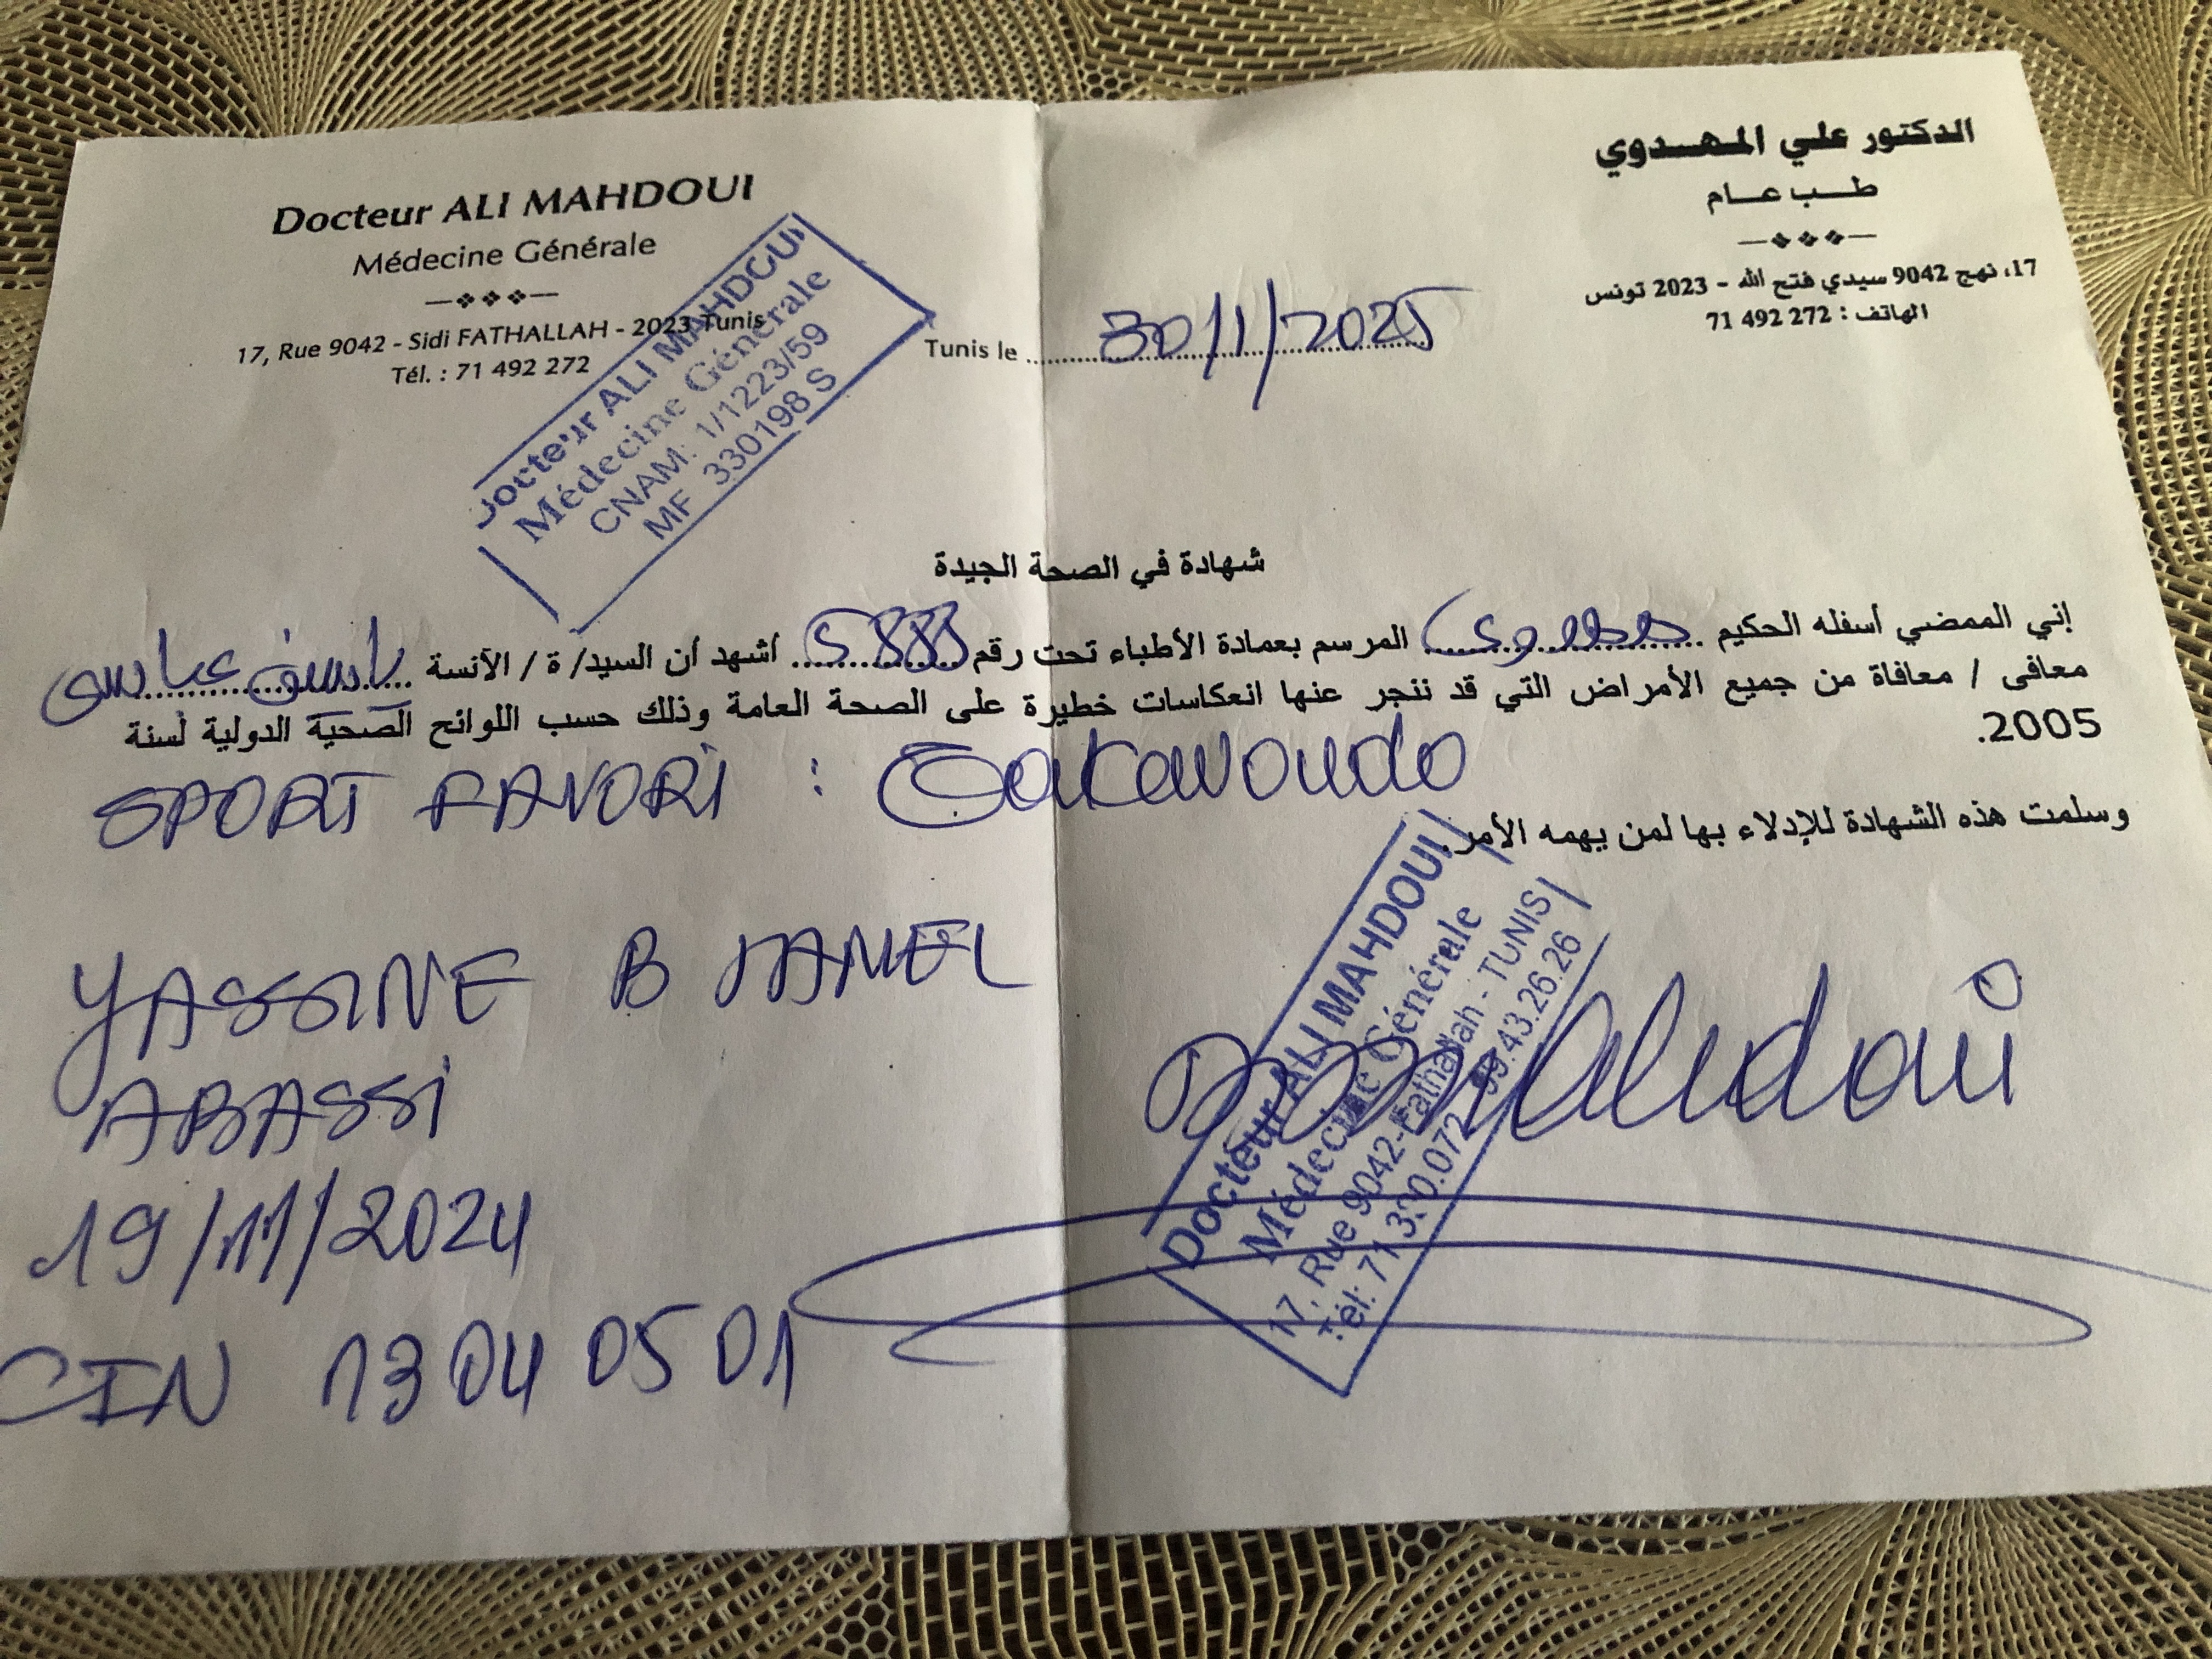 Docteur ALI MAHDOUI
Médecine Générale
17, Rue 9042 - Sidi FATHALLAH - 2023 Tunis
Tél. : 71 492 272
الدكتور علي المهدوي
طب عام
17، نهج 9042 سيدي فتح الله - 2023 تونس
الهاتف : 272 492 71
Docteur ALI MAHDOUI
Médecine Générale
CNAM: 1/1223/59
MF 330198 S
Tunis le 30/1/2025
شهادة في الصحة الجيدة
إني الممضي أسفله الحكيم المرسم بعمادة الأطباء تحت رقم أشهد أن السيد/ ة / الآنسة ياسين عباسي
معافى / معافاة من جميع الأمراض التي قد ننجر عنها انعكاسات خطيرة على الصحة العامة وذلك حسب اللوائح الصحية الدولية لسنة
2005.
SPORT FAVORI :
وسلمت هذه الشهادة للإدلاء بها لمن يهمه الأمر.
YASSINE B JAMEL
ABASSI
19/11/2024
CIN 13 04 05 01
Docteur ALI MAHDOUI
Médecine Générale
17, Rue 9042-Fathallah - TUNIS
Tél: 71 .072 99.43.26.26